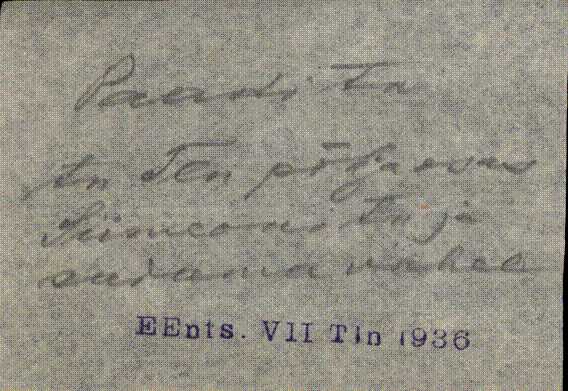 Paadi tn
tn Tln põhjaosas
Siimeoni tn ja
sadama vahel
EEnts. VII Tln 1936